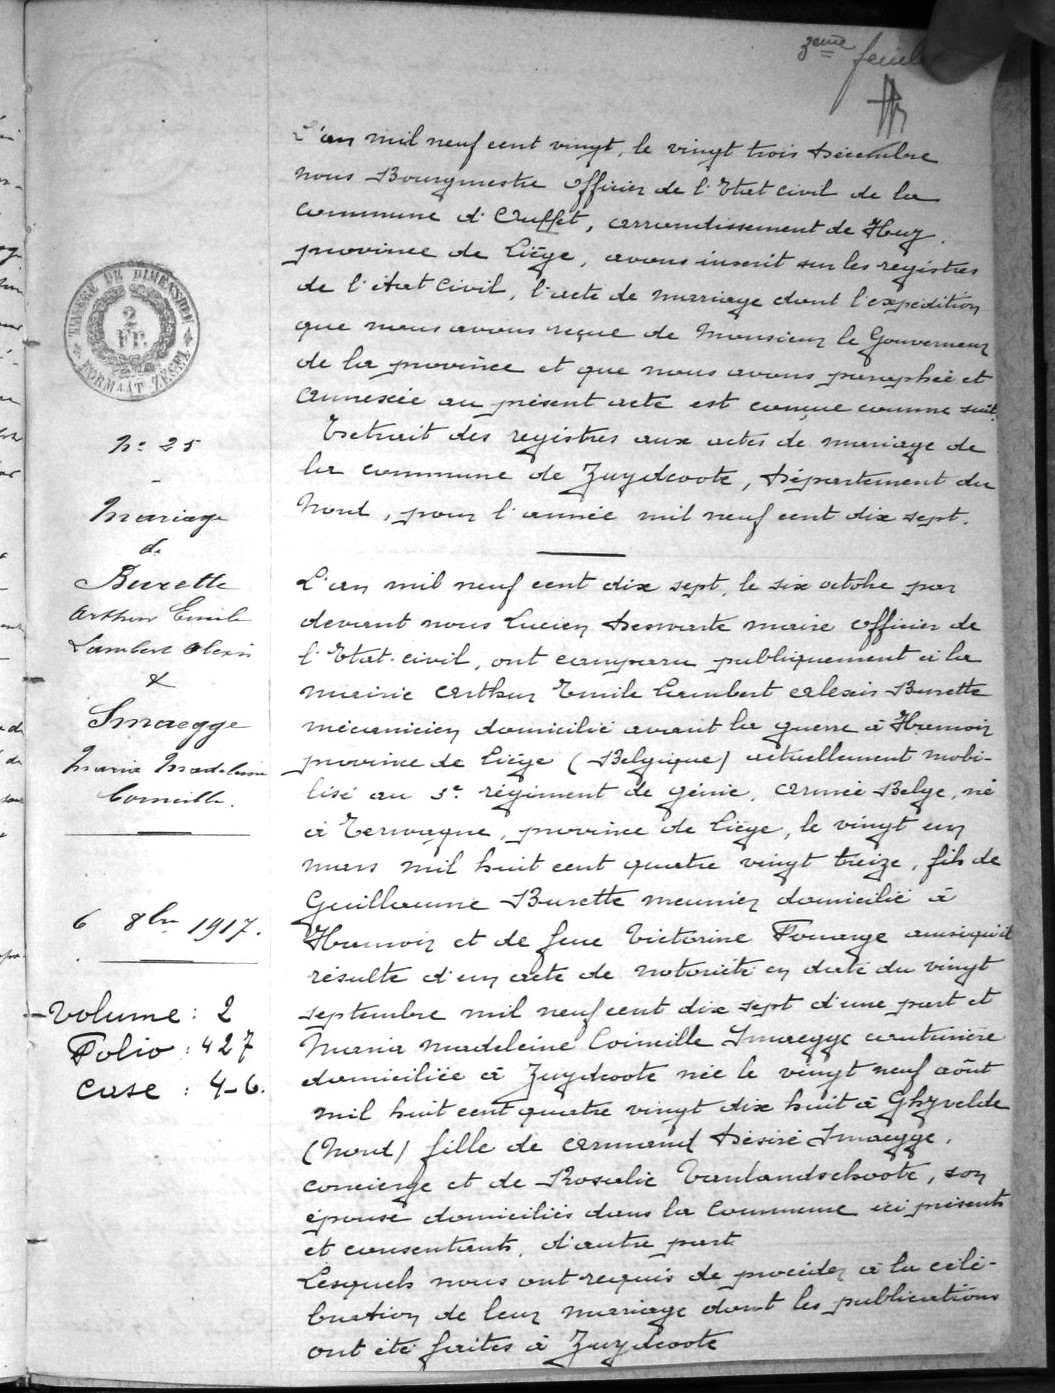 3eme feuillet
L'an mil neuf cent vingt, le vingt trois Décembre
nous Bourgmestre Officier de l'Etat civil de la
commune d'Ouffet, arrondissement de Huy,
province de Liège, avons inscrit sur les registres
de l'état civil, l'acte de mariage dont l'expédition
que nous avons reçue de Monsieur le Gouverneur
de la province et que nous avons paraphée et
annexée au présent acte est conçue comme suit.
Extrait des registres aux actes de mariage de
la commune de Zuydcoote, Département du
Nord, pour l'année mil neuf cent dix sept.
TIMBRE DE DIMENSION
2
FR.
FORMAAT ZEGEL
No 25
Mariage
de
Burette
Arthur Emile
Lambert Alexis
&
Smaegge
Maria Madeleine
Corneille.
6 8bre 1917.
Volume : 2
Folio : 427
Case : 4-6.
L'an mil neuf cent dix sept, le six octobre par
devant nous Lucien Deswarte maire officier de
l'Etat-civil, ont comparu publiquement à la
mairie Arthur Emile Lambert Alexis Burette
mécanicien domicilié avant la guerre à Hamoir
province de Liège (Belgique) actuellement mobi-
lisé au 5e régiment de génie, Armée Belge, né
à Terwagne, province de Liège, le vingt un
mars mil huit cent quatre vingt treize, fils de
Guillaume Burette meunier domicilié à
Hamoir et de feue Victorine Fouarge ainsi qu'il
résulte d'un acte de notoriété en date du vingt
septembre mil neuf cent dix sept d'une part et
Maria Madeleine Corneille Smaegge couturière
domiciliée à Zuydcoote née le vingt neuf août
mil huit cent quatre vingt dix huit à Ghyvelde
(Nord) fille de Armand Désiré Smaegge,
concierge et de Rosalie Vanlandschoote, son
épouse domiciliés dans la Commune ici présents
et consentants, d'autre part
Lesquels nous ont requis de procéder à la célé-
bration de leur mariage dont les publications
ont été faites à Zuydcoote